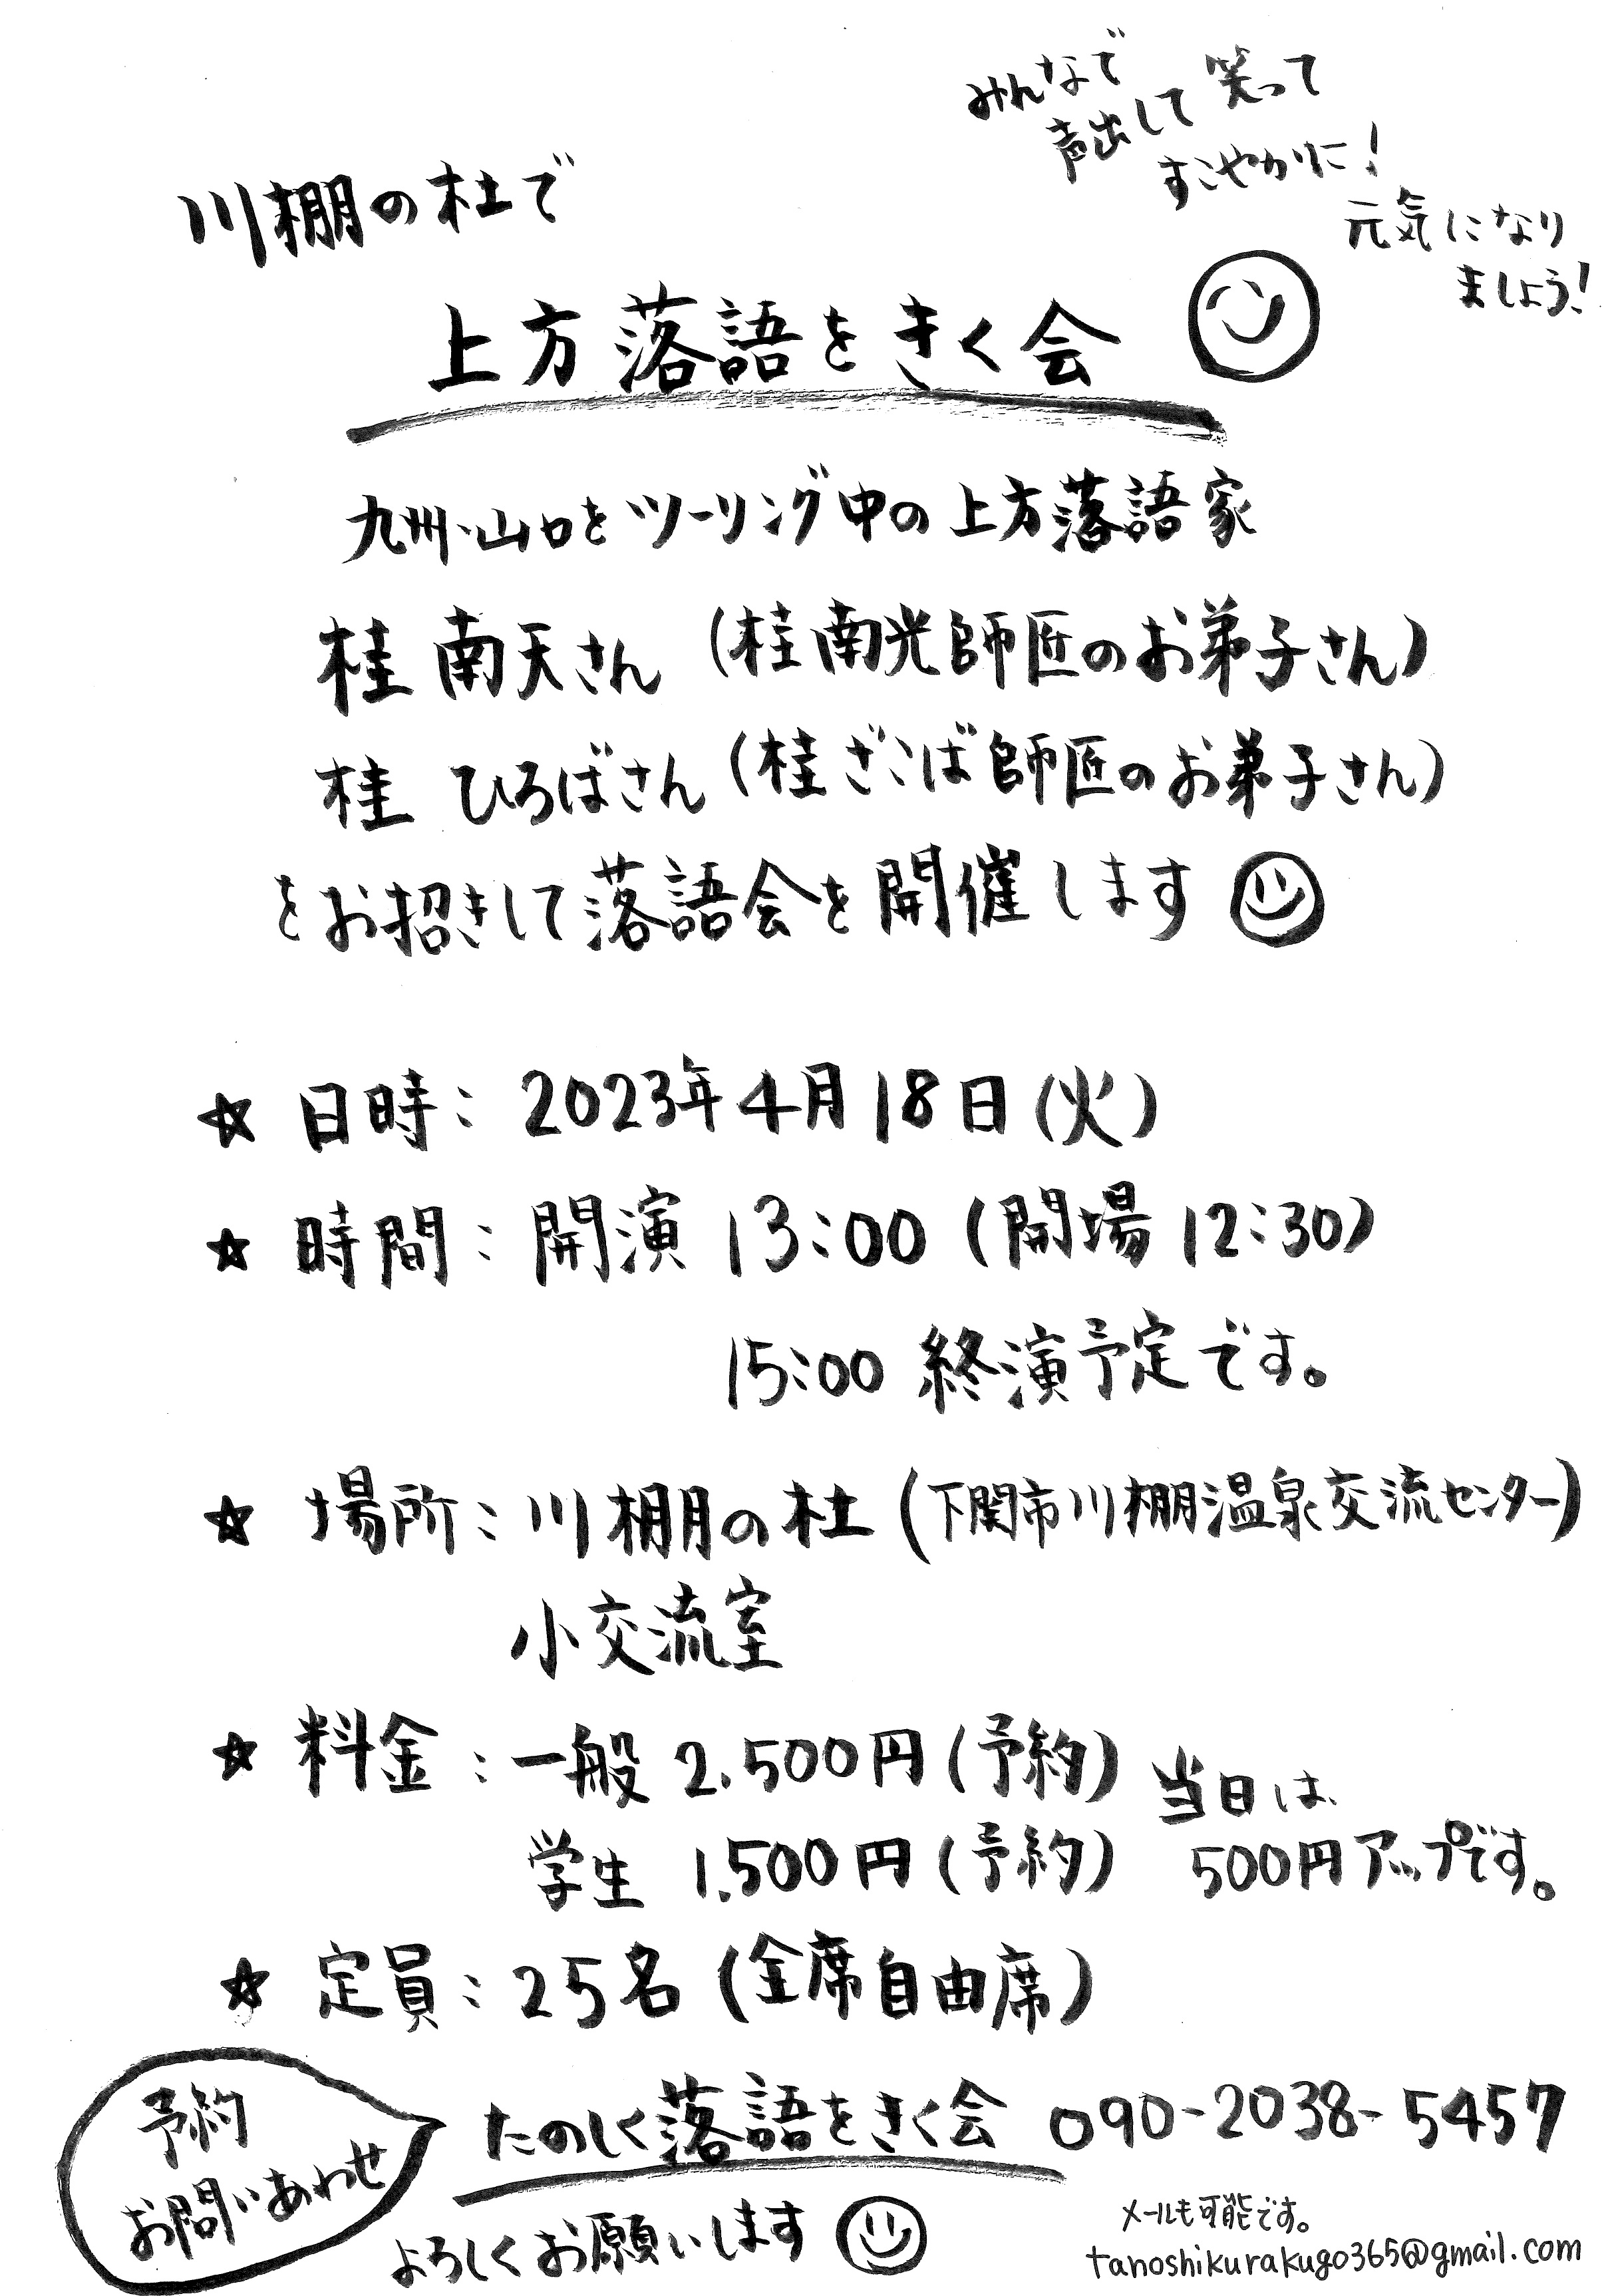 みんなで
声出して笑って
すこやかに!
元気になり
ましょう!
川棚の杜で
上方落語をきく会
九州・山口をツーリング中の上方落語家
桂 南天さん (桂南光師匠のお弟子さん)
桂 ひろばさん (桂ざこば師匠のお弟子さん)
をお招きして落語会を開催します
☆ 日時: 2023年4月18日(火)
☆ 時間: 開演 13:00 (開場 12:30)
15:00 終演予定です。
☆ 場所: 川棚の杜 (下関市川棚温泉交流センター)
小交流室
☆ 料金: 一般 2.500円(予約)
学生 1.500円(予約)
当日は、
500円アップです。
☆ 定員: 25名 (全席自由席)
予約
お問いあわせ
たのしく落語をきく会 090-2038-5457
よろしくお願いします
メールも可能です。
tanoshikurakugo365@gmail.com